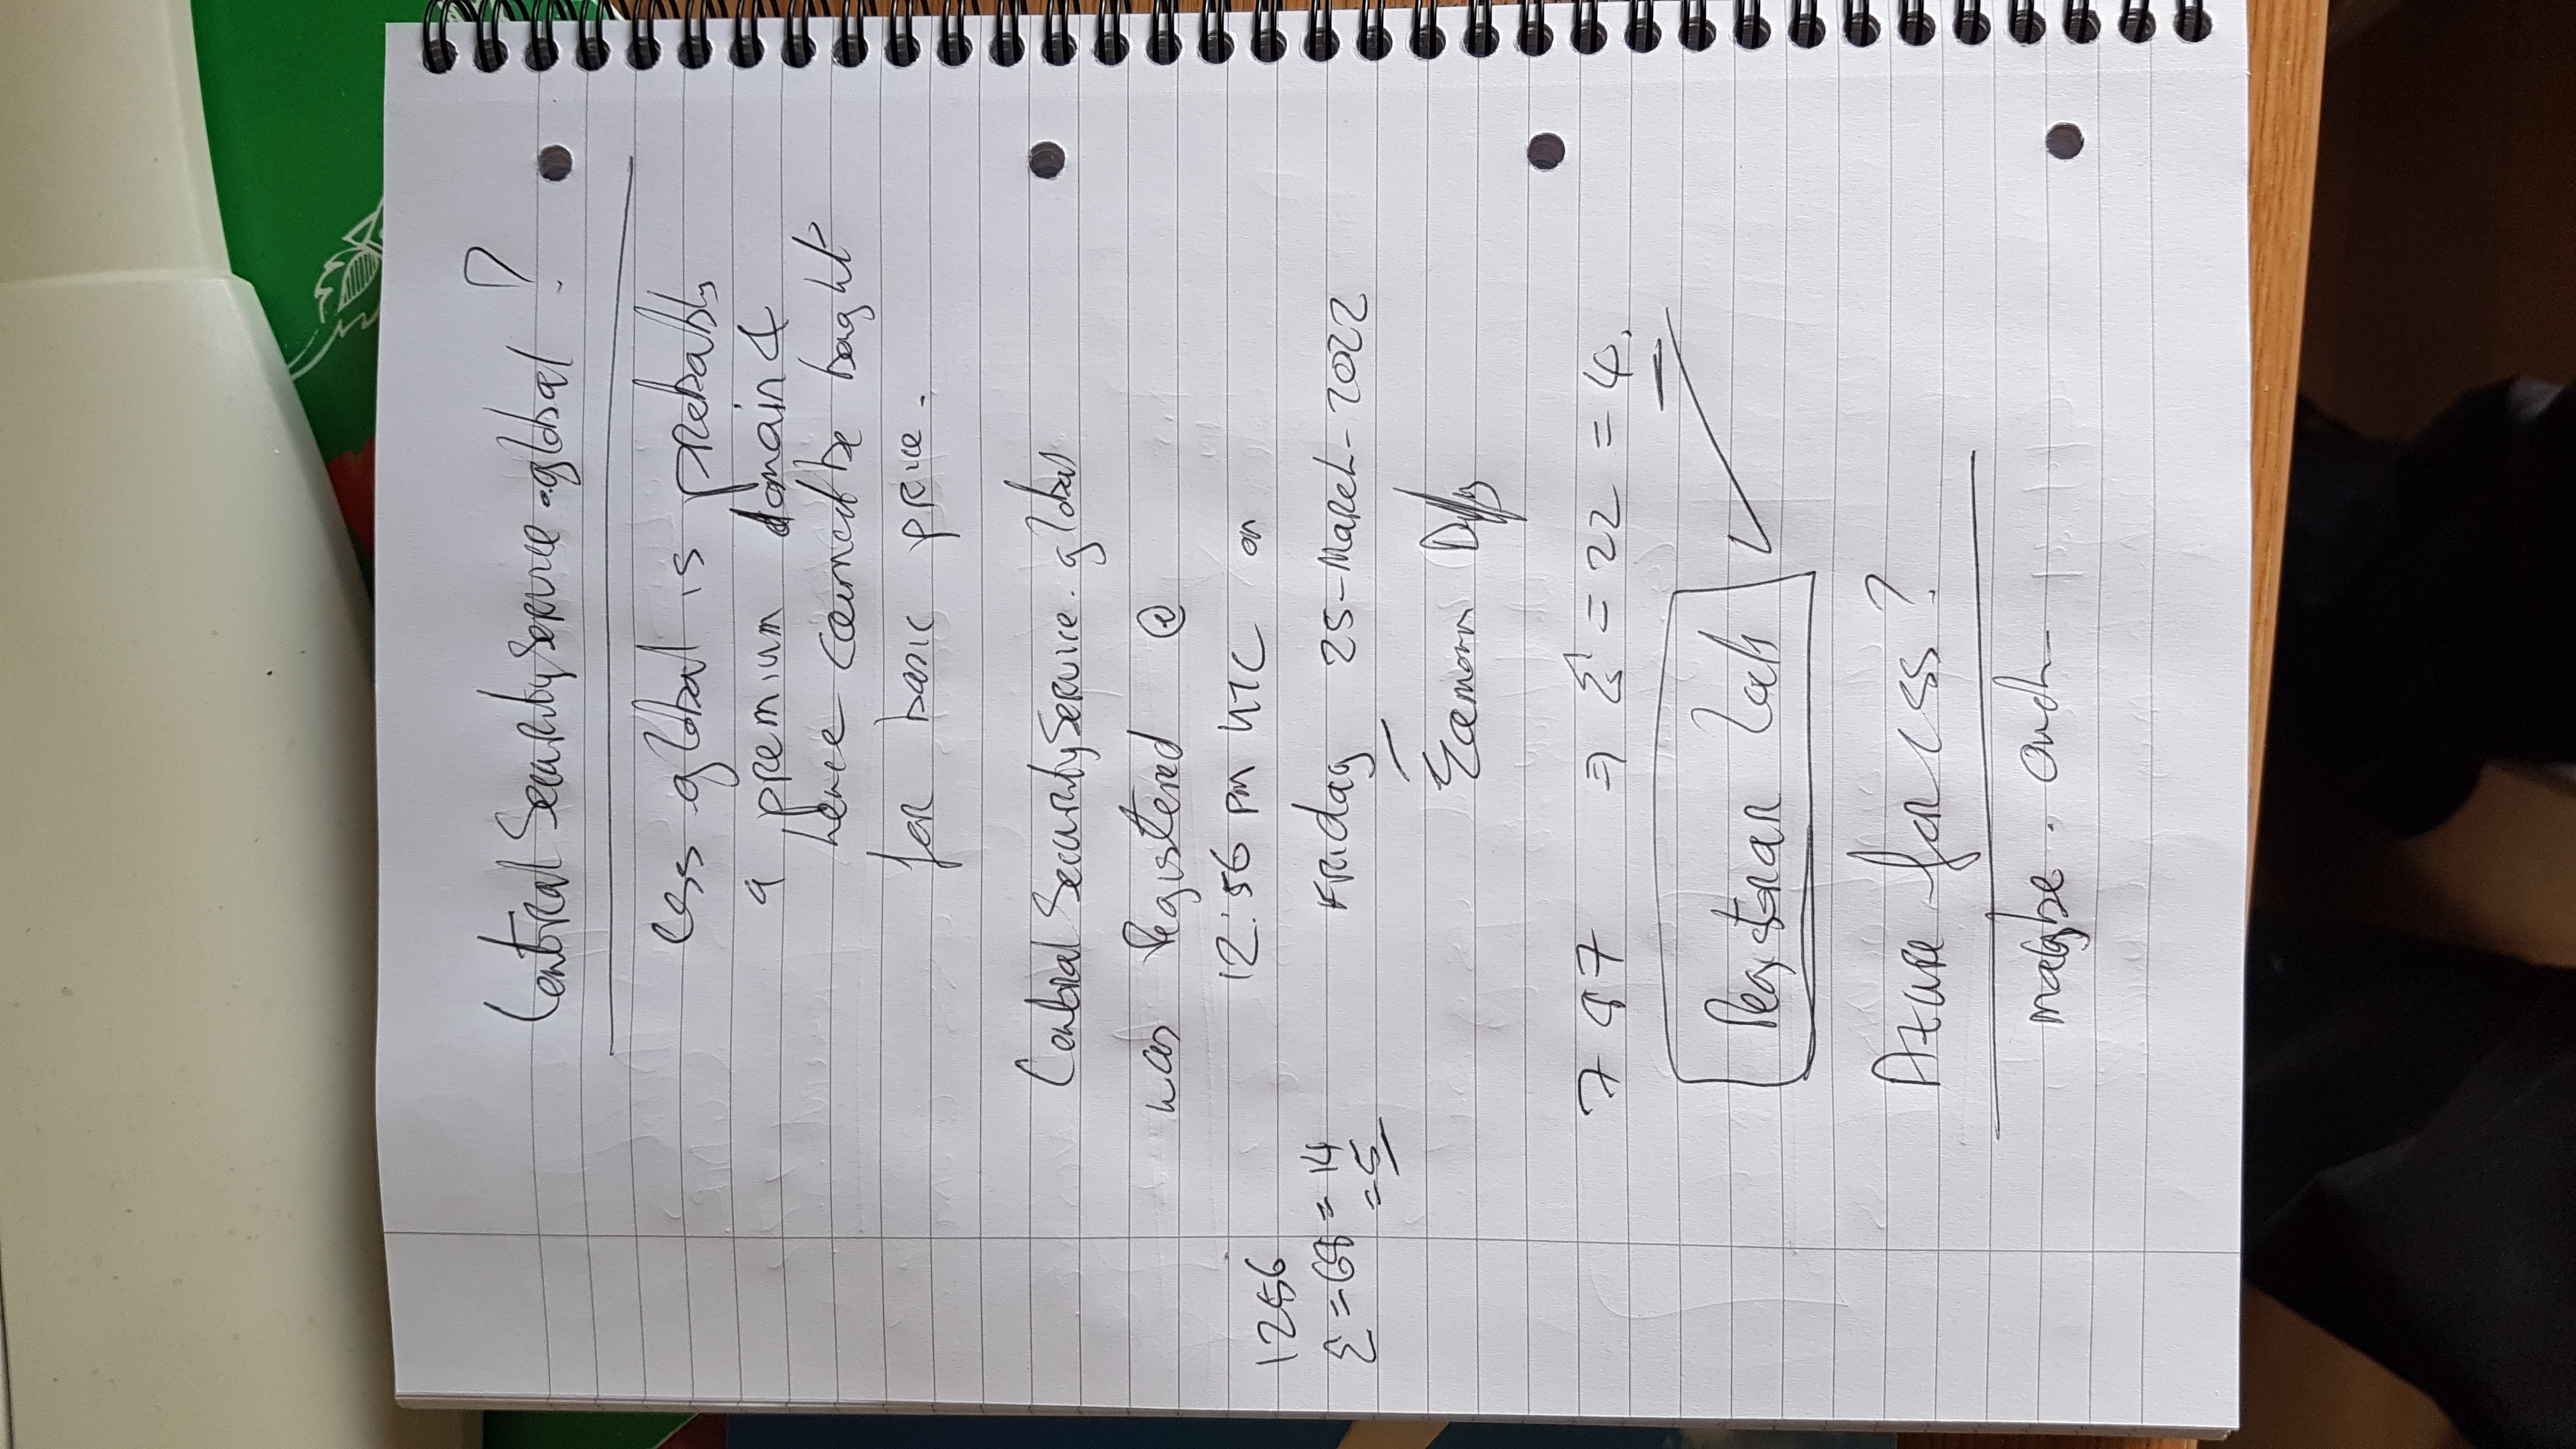 CentralSecurityService.global ?
CSS global is probably
a premium domain &
hence cannot be bought
for basic price.
CentralSecurityService.global
was Registered @
12:56 pm UTC on
1256
Σ = 68 = 14
= 5
Friday 25-March-2022
Eamonn Duffy
787 ⇒ Σ = 22 = 4.
Registrar Lock ✓
Azure for CSS?
maybe. Ouch